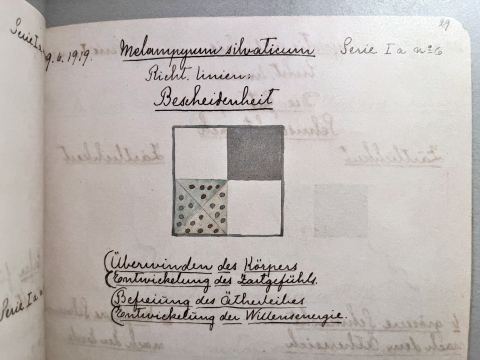 29
Serie I a
9.6.1919.
Melampyrum silvaticum
Serie I a n° 6
Richt. linien:
Bescheidenheit
Zärtlichkeit
(Überwinden des Körpers
(Entwickelung des Zartgefühls.
(Befreiung des Ätherleibes
(Entwickelung der Willensenergie.
Serie I a